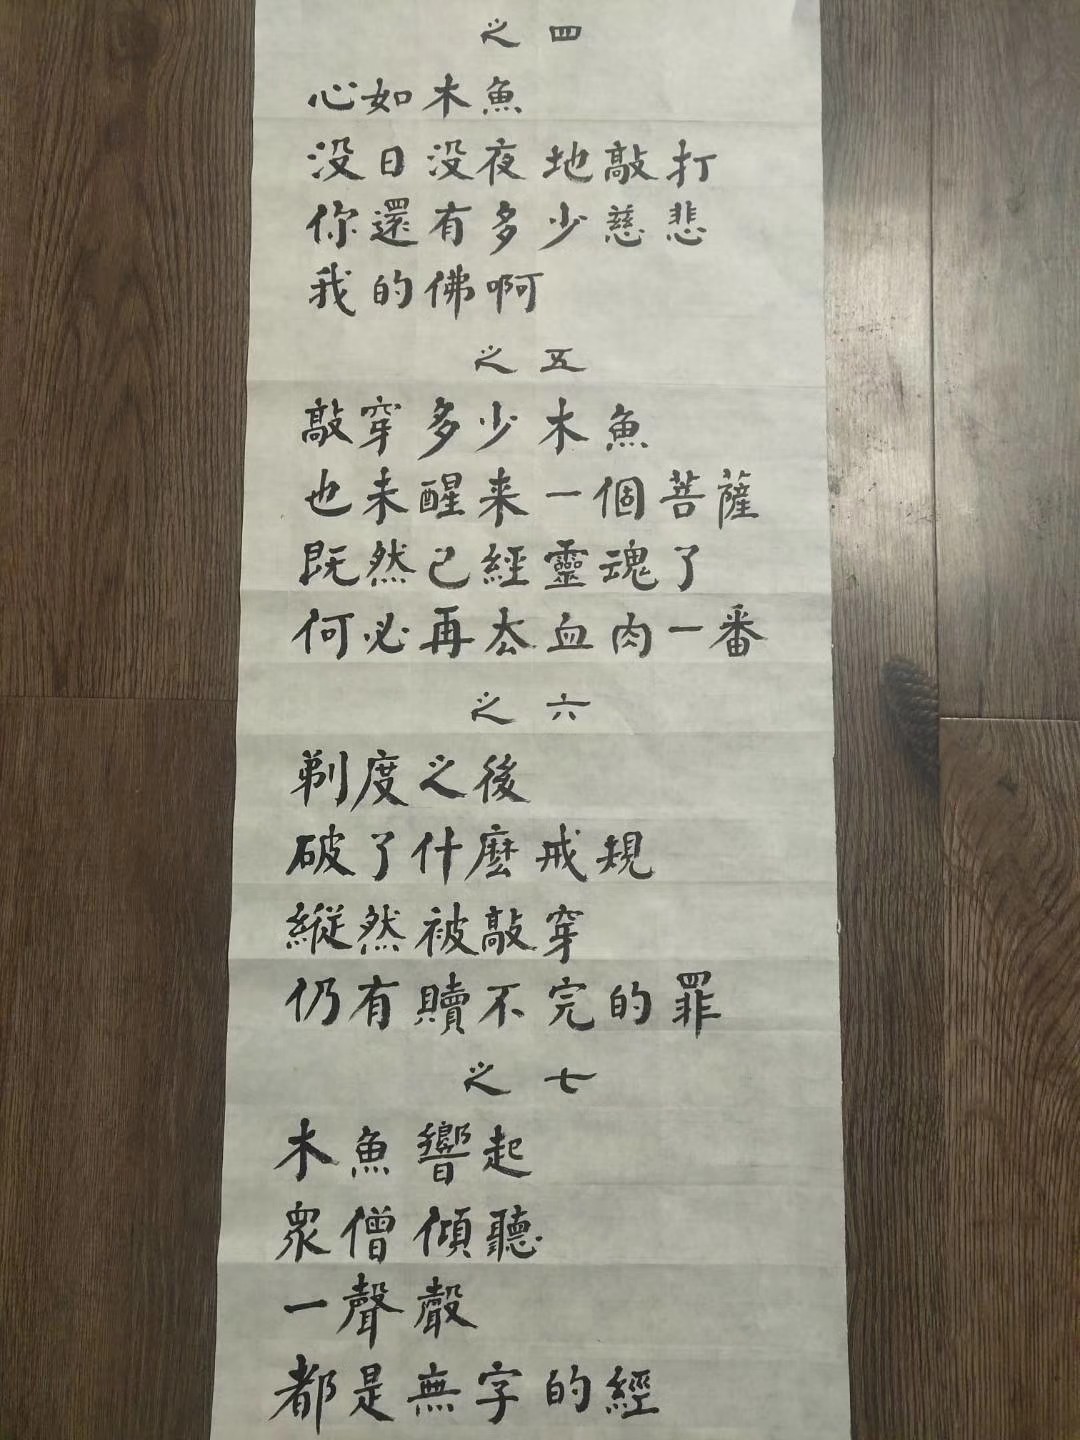 之四
心如木魚
没日没夜地敲打
你還有多少慈悲
我的佛啊
之五
敲穿多少木魚
也未醒来一個菩薩
既然已經靈魂了
何必再去血肉一番
之六
剃度之後
破了什麽戒規
縱然被敲穿
仍有贖不完的罪
之七
木魚響起
衆僧傾聽
一聲聲
都是無字的經